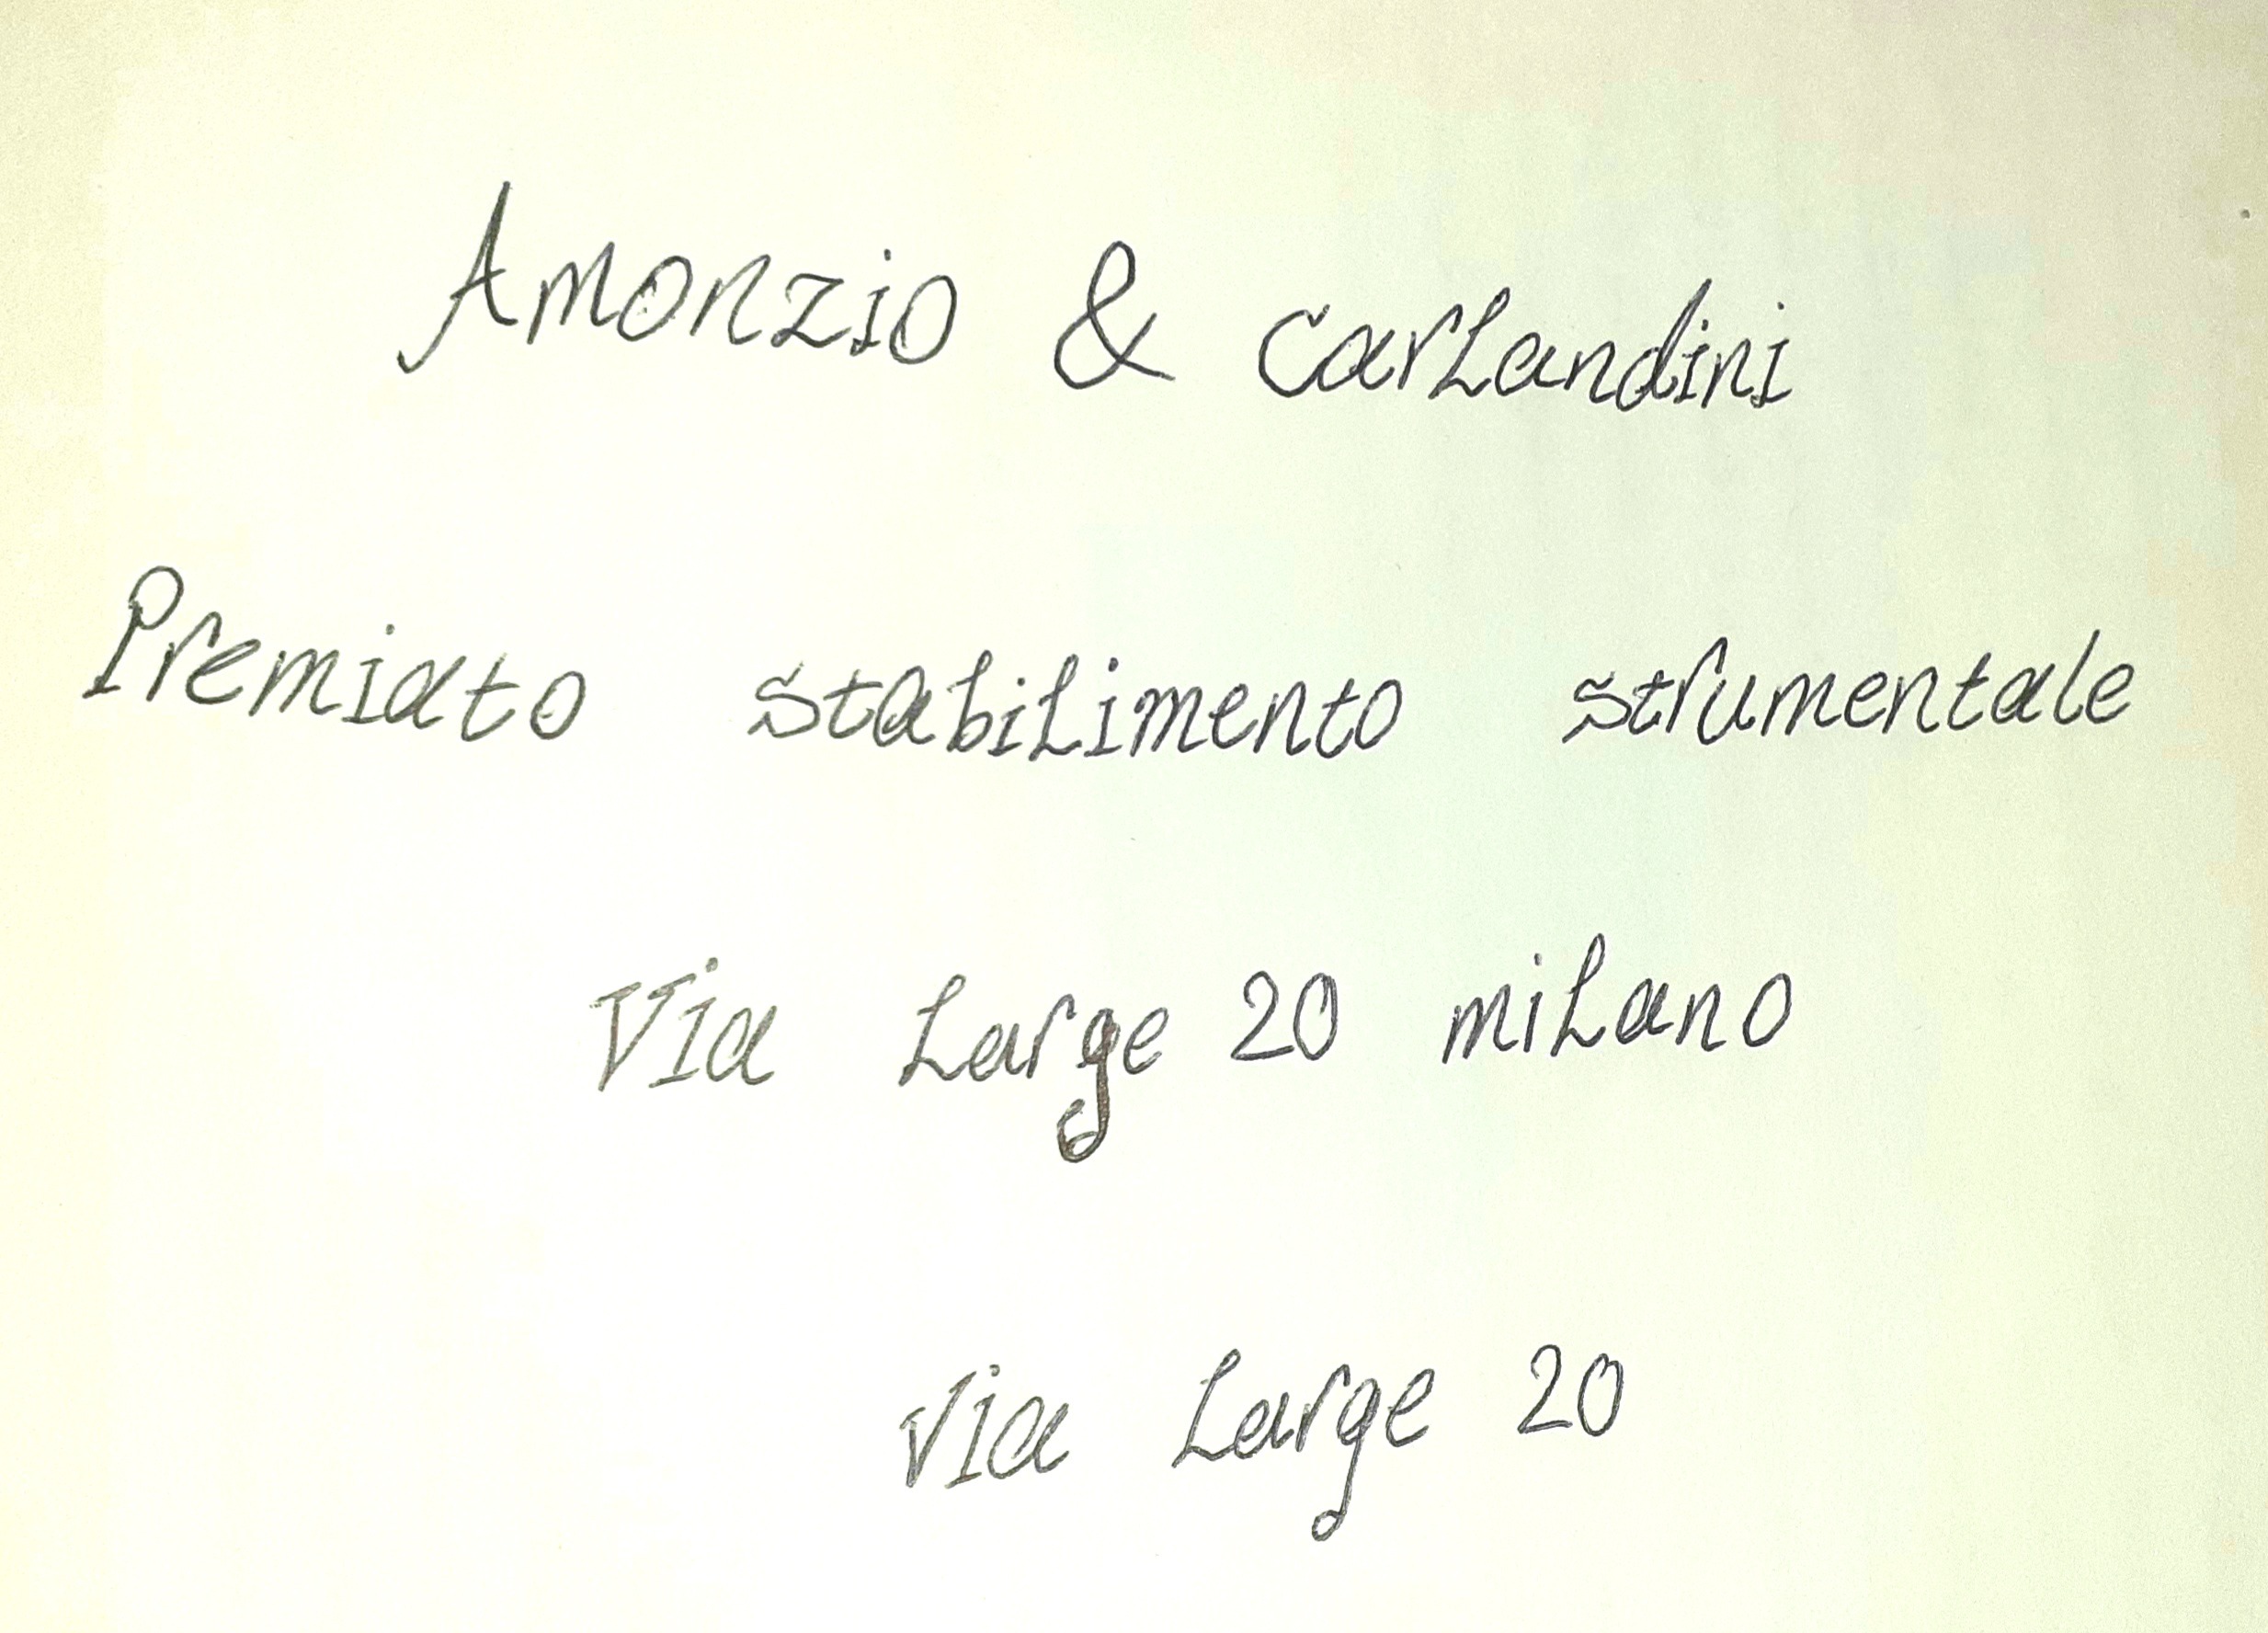 Amonzio & Carlandini
Premiato stabilimento strumentale
Via Large 20 milano
Via Large 20